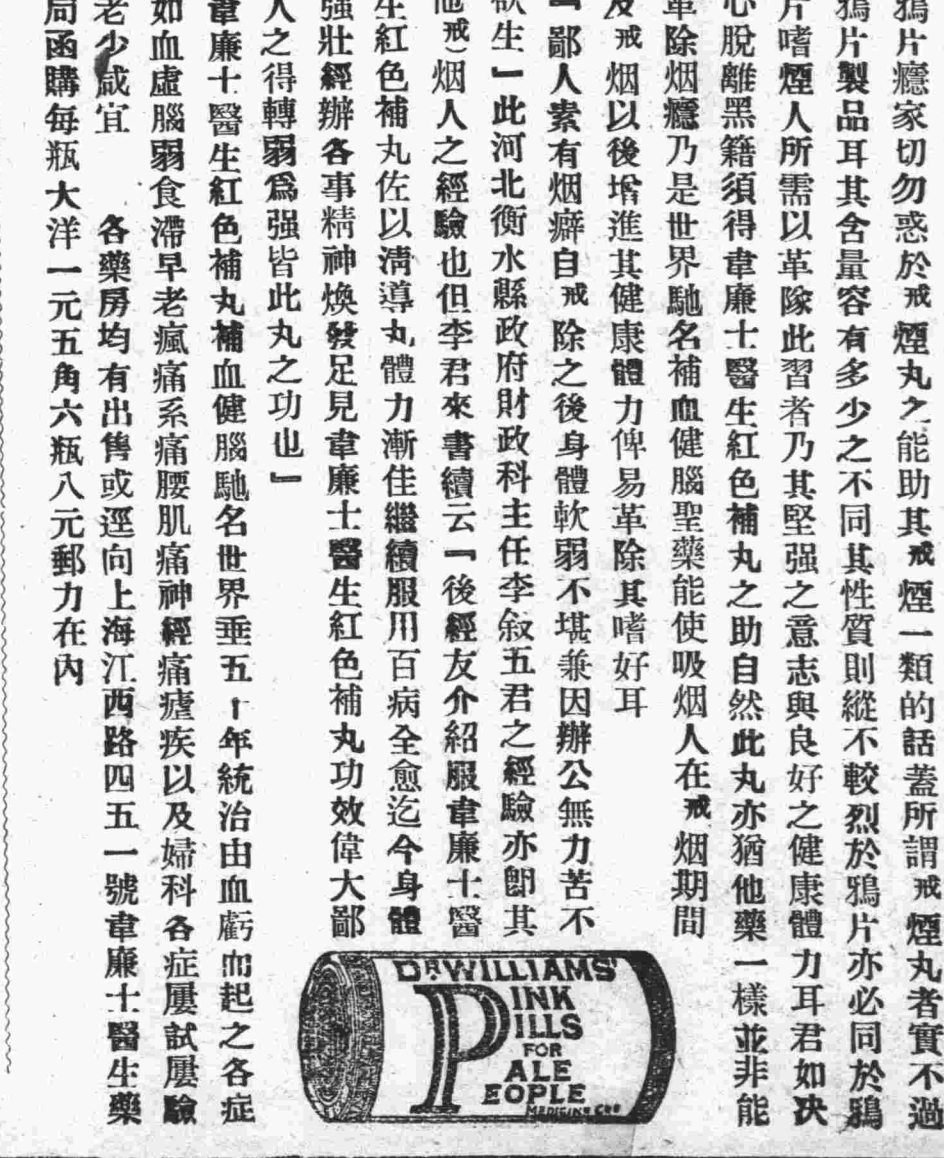 鴉片癮家切勿惑於戒煙丸之能助其戒煙一類的話蓋所謂戒煙丸者實不過
鴉片製品耳其含量容有多少之不同其性質則縱不較烈於鴉片亦必同於鴉
片嗜煙人所需以革除此習者乃其堅强之意志與良好之健康體力耳君如决
心脫離黑籍須得韋廉士醫生紅色補丸之助自然此丸亦猶他藥一樣並非能
革除烟癮乃是世界馳名補血健腦聖藥能使吸烟人在戒烟期間
及戒烟以後增進其健康體力俾易革除其嗜好耳
『鄙人素有烟癖自戒除之後身體軟弱不堪兼因辦公無力苦不
欲生』此河北衡水縣政府財政科主任李叙五君之經驗亦卽其
他(戒)烟人之經驗也但李君來書續云『後經友介紹服韋廉士醫
生紅色補丸佐以淸導丸體力漸佳繼續服用百病全愈迄今身體
強壯經辦各事精神煥發足見韋廉士醫生紅色補丸功效偉大鄙
人之得轉弱爲强皆此丸之功也』
韋廉士醫生紅色補丸補血健腦馳名世界垂五十年統治由血虧而起之各症
如血虛腦弱食滯早老瘋痛系痛腰肌痛神經痛瘧疾以及婦科各症屢試屢驗
老少咸宜 各藥房均有出售或逕向上海江西路四五一號韋廉士醫生藥
局函購每瓶大洋一元五角六瓶八元郵力在內
DR WILLIAMS'
PINK
PILLS
FOR
PALE
PEOPLE
MEDICINE Co